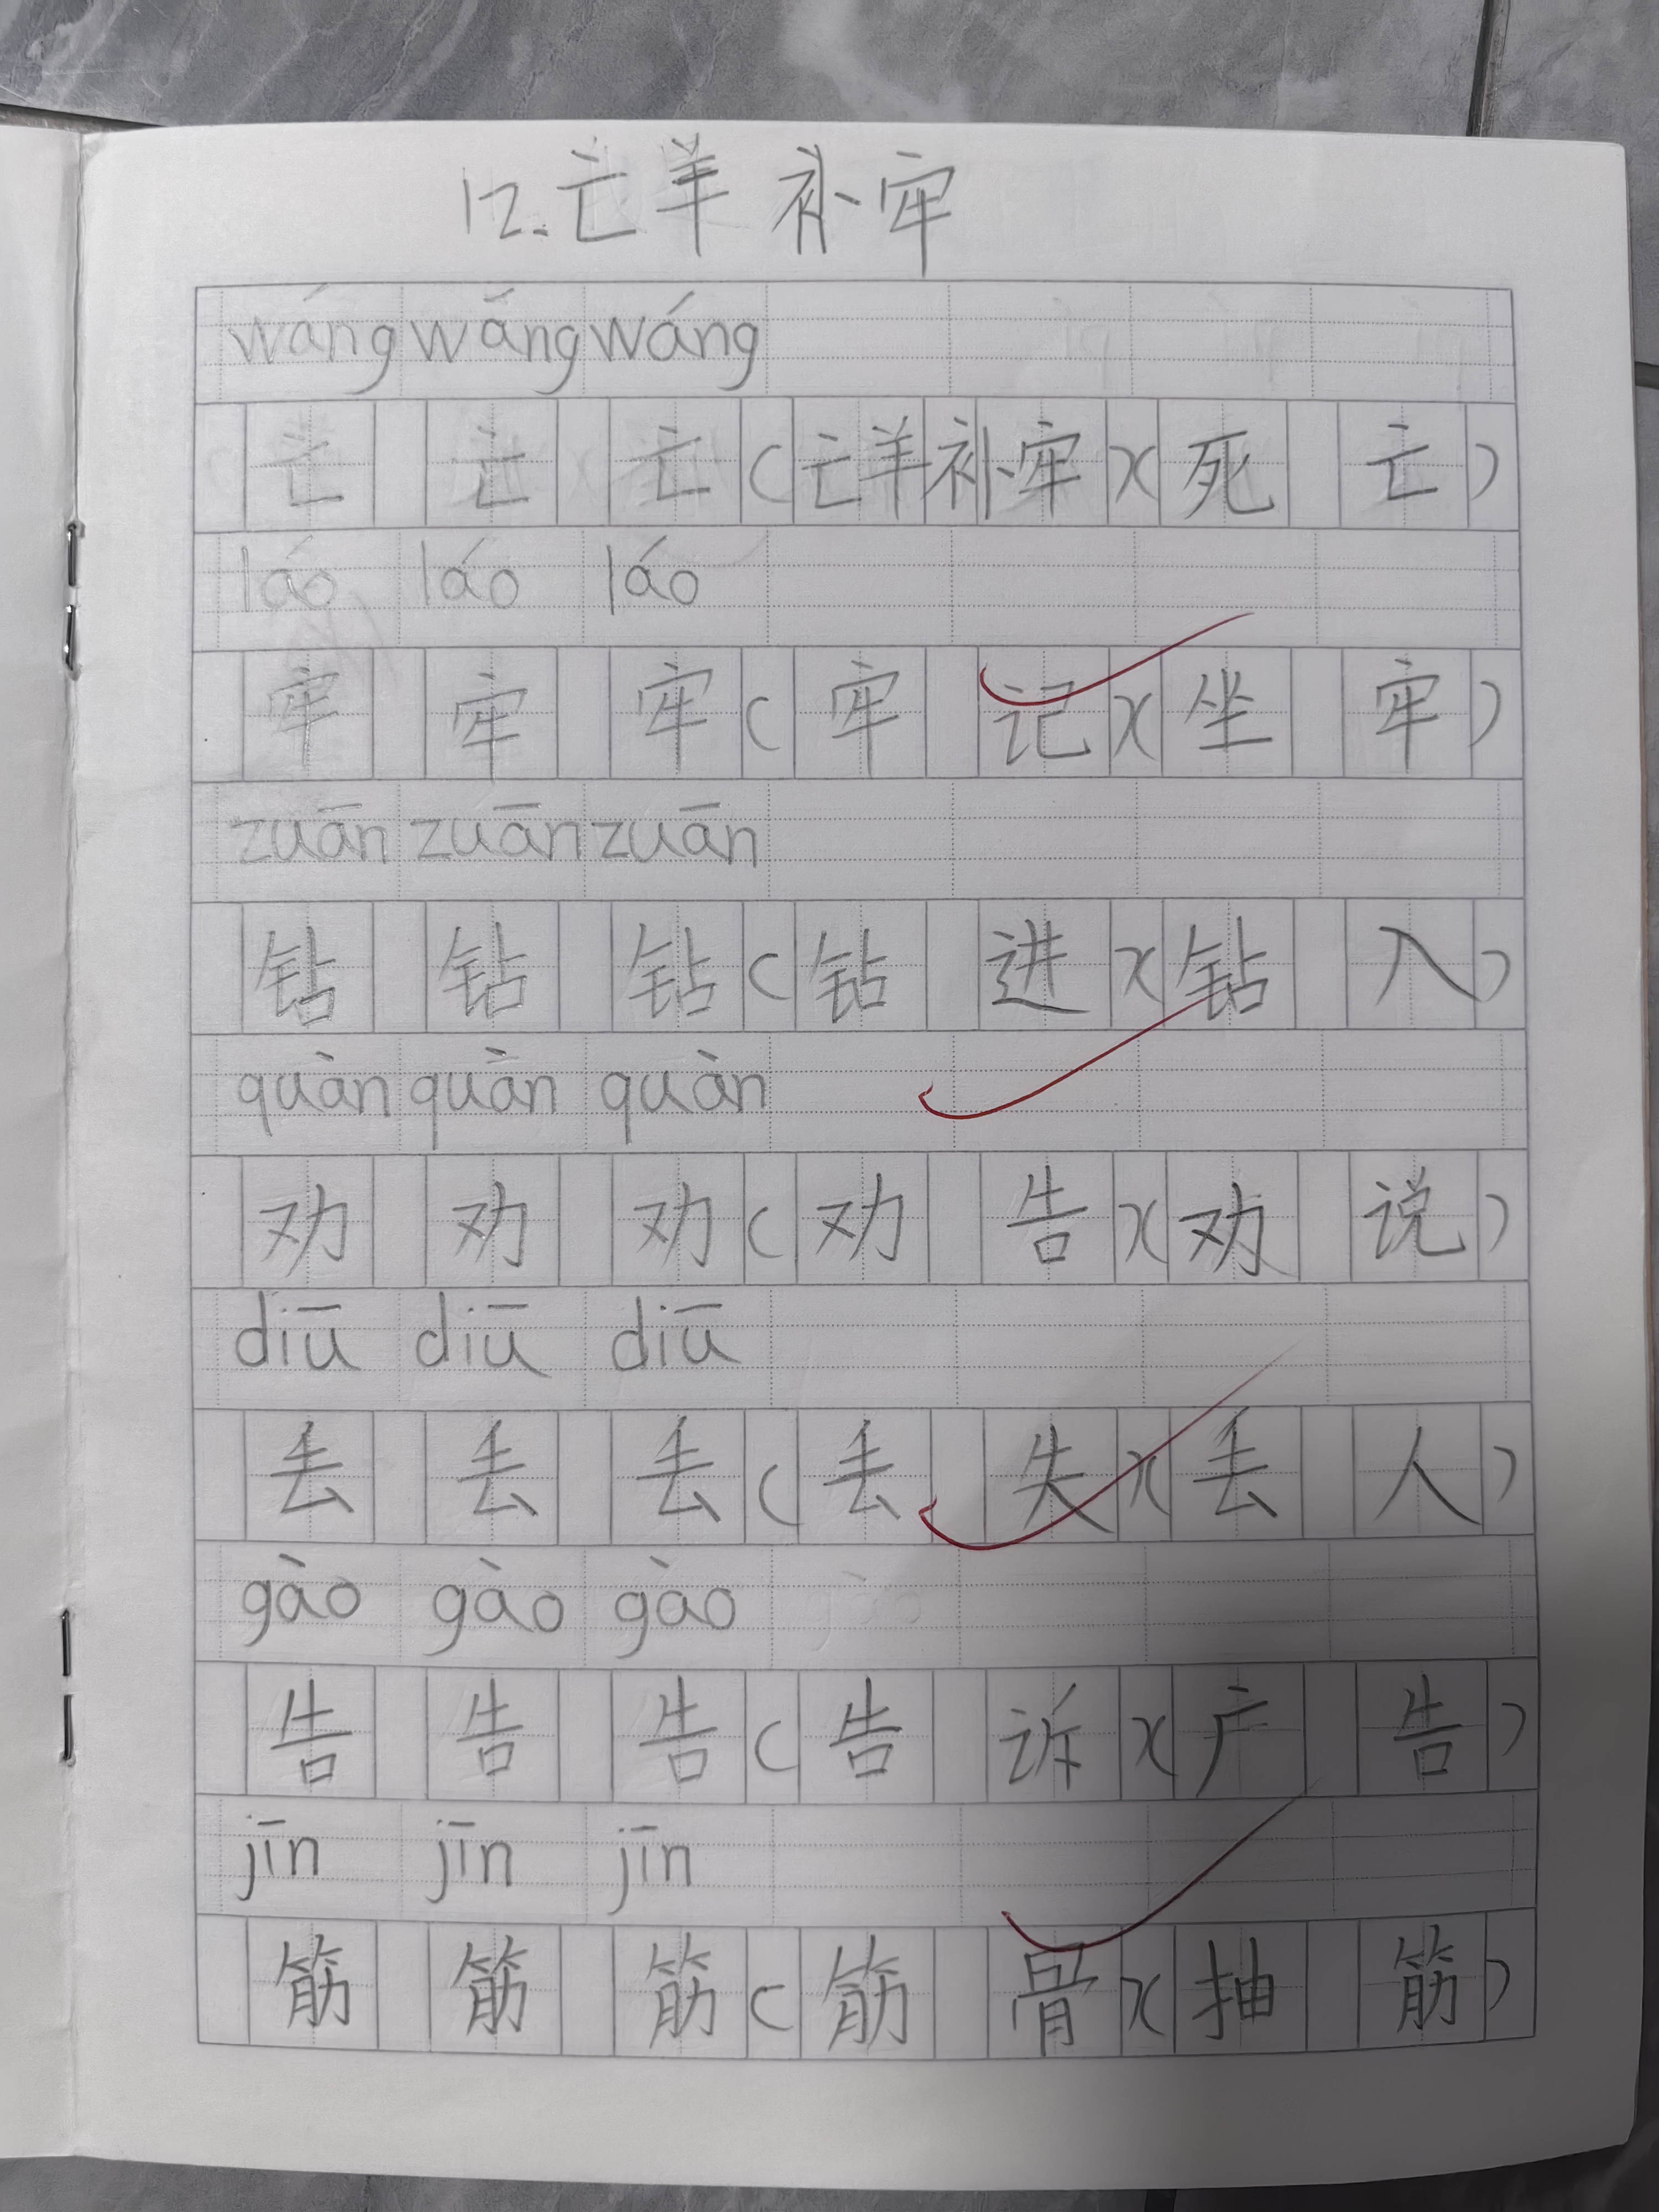 12.亡羊补牢
wáng wáng wáng
亡 亡 亡(亡羊补牢)(死亡)
láo láo láo
牢 牢 牢(牢记)(坐牢)
zuān zuān zuān
钻 钻 钻(钻进)(钻入)
quàn quàn quàn
劝 劝 劝(劝告)(劝说)
diū diū diū
丢 丢 丢(丢失)(丢人)
gào gào gào
告 告 告(告诉)(广告)
jīn jīn jīn
筋 筋 筋(筋骨)(抽筋)